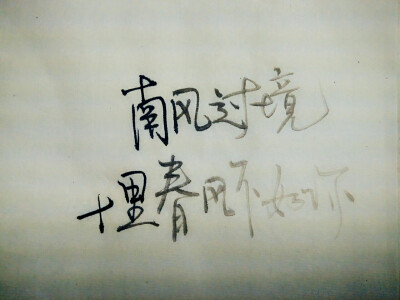 南风过境
十里春风不如你